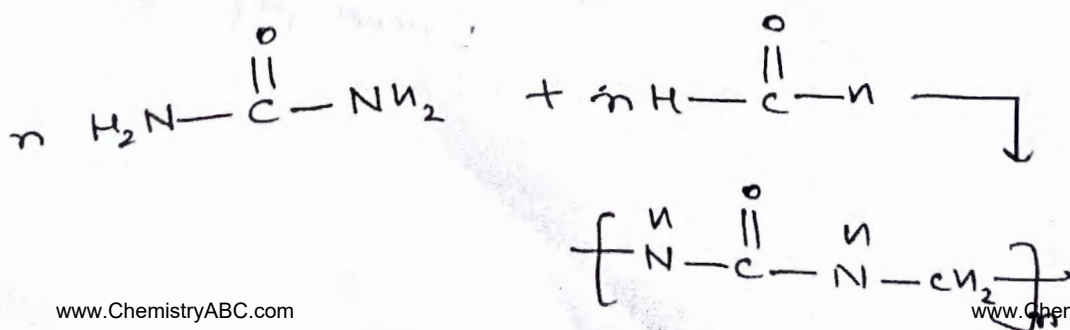 O O
|| ||
n H₂N—C—NH₂ + n H—C—H
H O H
||
[N—C—N—CH₂]n
www.ChemistryABC.com
www.Chem